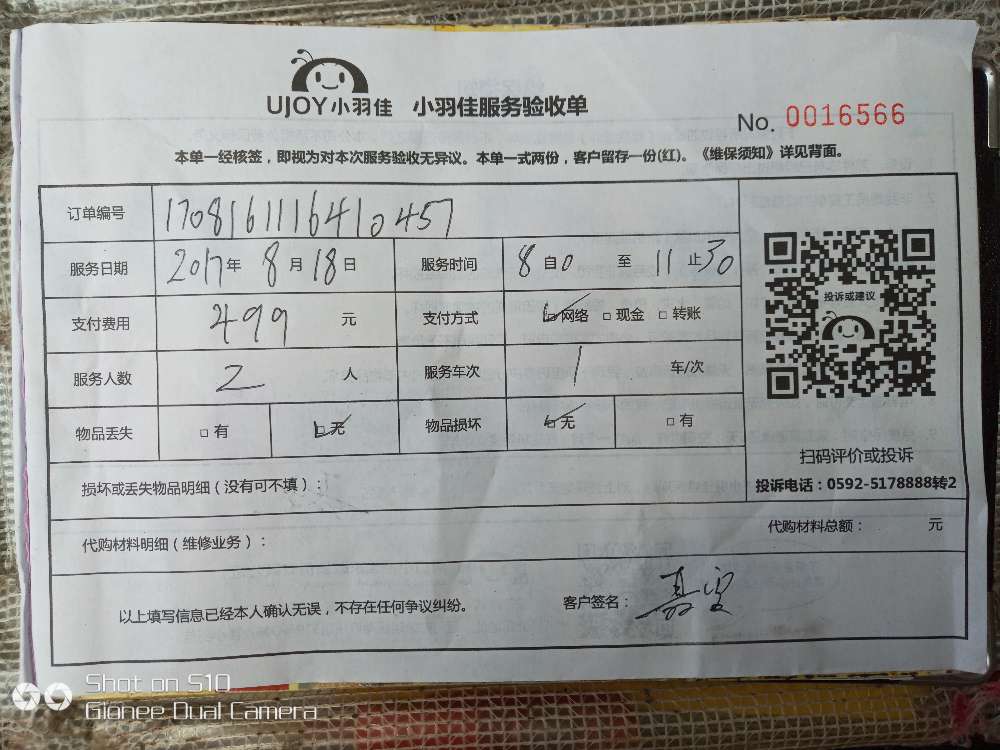 UJOY小羽佳 小羽佳服务验收单
No. 0016566
本单一经核签，即视为对本次服务验收无异议。本单一式两份，客户留存一份(红)。《维保须知》详见背面。
订单编号 170816111641 0457
服务日期 2017年 8月18日 服务时间 8自0 至 11止30
支付费用 499 元 支付方式 网络 现金 转账
投诉或建议
服务人数 2 人 服务车次 1 车/次
物品丢失 有 无 物品损坏 无 有
扫码评价或投诉
损坏或丢失物品明细（没有可不填）：
投诉电话：0592-5178888转2
代购材料明细（维修业务）：
代购材料总额： 元
以上填写信息已经本人确认无误，不存在任何争议纠纷。 客户签名：
Shot on S10
Gionee Dual Camera